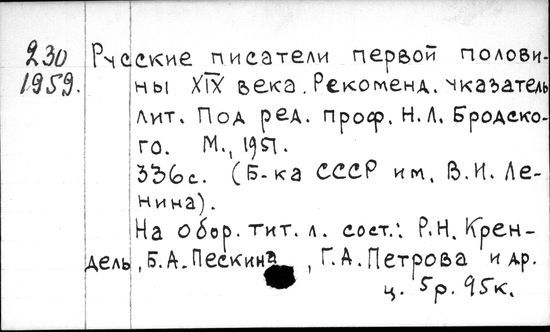 230 Русские писатели первой полови-
1959. ны XIX века. Рекоменд. указатель
лит. Под ред. проф. Н.Л. Бродско-
го. М., 1951.
336с. (Б-ка СССР им. В.И. Ле-
нина).
На обор. тит. л. сост.: Р.Н. Крен-
дель, Б.А. Пескина, Г.А. Петрова и др.
ц. 5р. 95к.